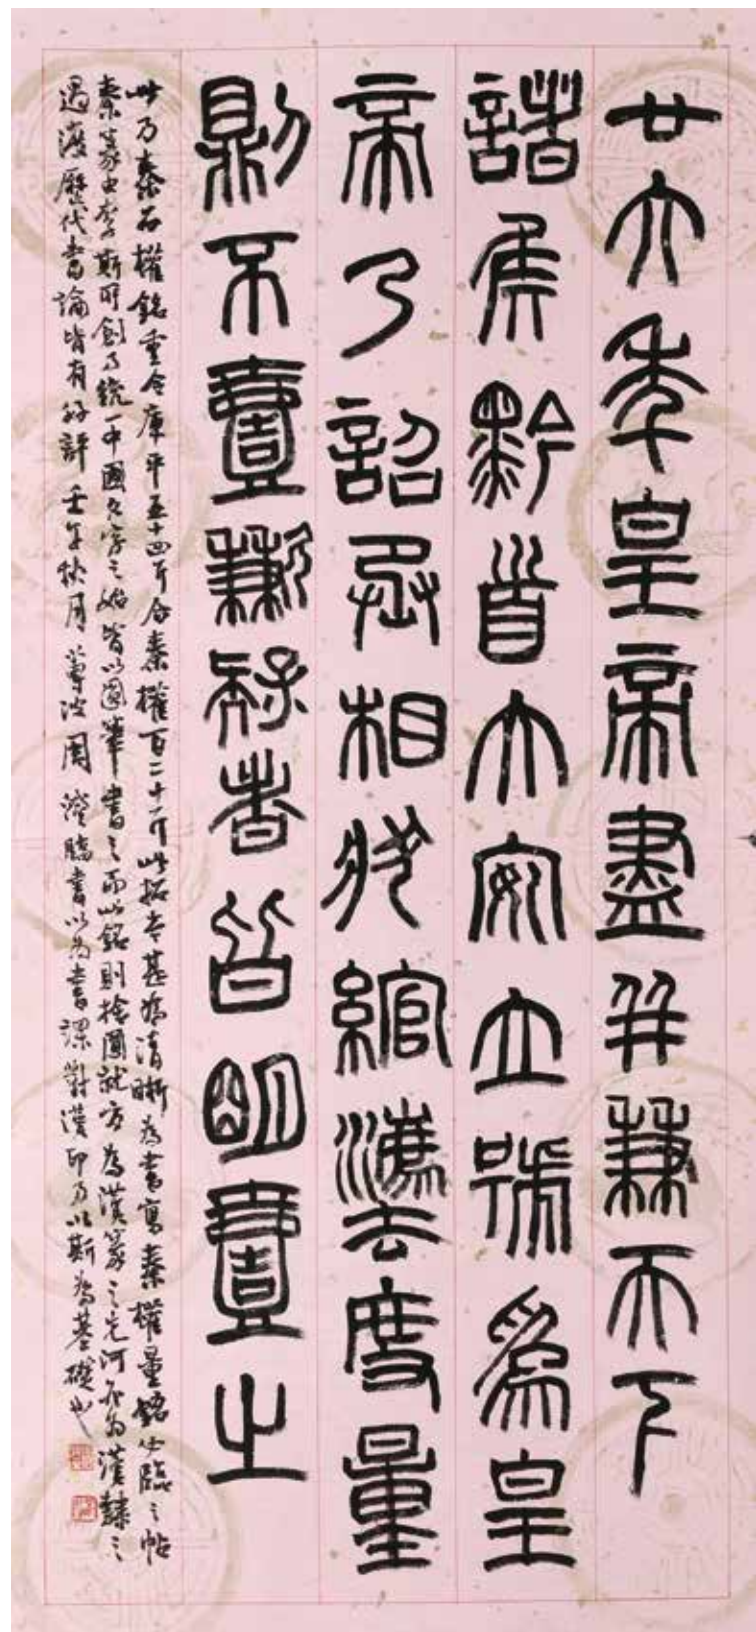 廿六年皇帝盡并兼天下
諸矦黔首大安立號為皇
帝乃詔丞相狀綰灋度量
則不壹歉疑者皆明壹之
此乃秦石權銘重今庫平五十四斤合秦權百二十斤此拓本甚為清晰為書寫秦權量銘必臨之帖
秦篆由李斯所創乃統一中國文字之始皆以圓筆書之而此銘則捨圓就方為漢篆之先河亦為漢隸之
過渡歷代書論皆有好評壬午秋月蓴波周澄臨書以為書課對漢印乃以斯為基礎也